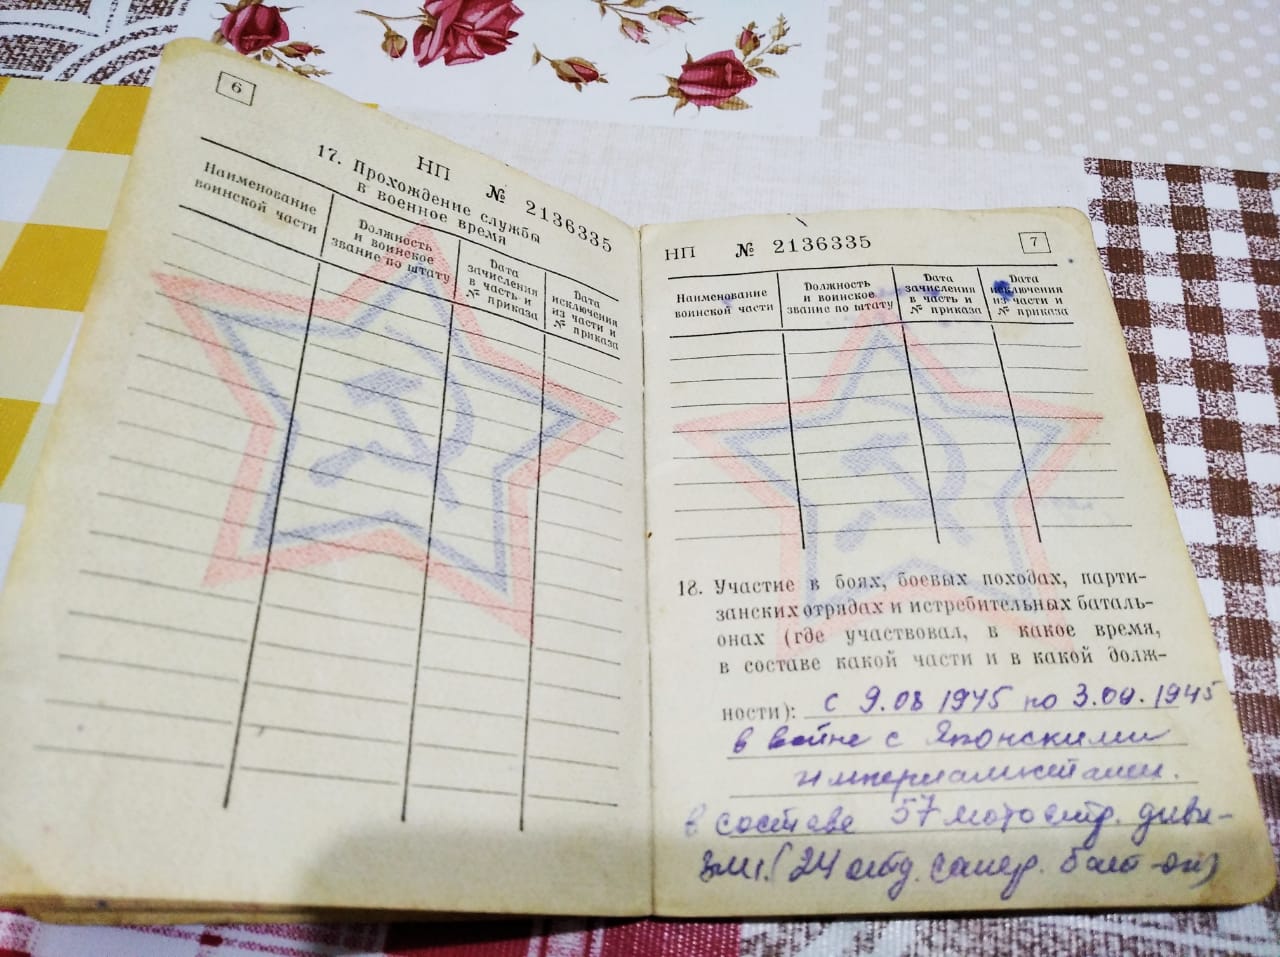 6
НП № 2136335
17. Прохождение службы
в военное время
Наименование
воинской части
Должность
и воинское
звание по штату
Дата
зачисления
в часть и
№ приказа
Дата
исключения
из части и
№ приказа
НП № 2136335
7
Наименование
воинской части
Должность
и воинское
звание по штату
Дата
зачисления
в часть и
№ приказа
Дата
исключения
из части и
№ приказа
18. Участие в боях, боевых походах, парти-
занских отрядах и истребительных баталь-
онах (где участвовал, в какое время,
в составе какой части и в какой долж-
ности): с 9.08 1945 по 3.09.1945
в войне с Японскими
империалистами.
в составе 57 мотостр. диви-
зии. (24 отд. сапер. бат-он)